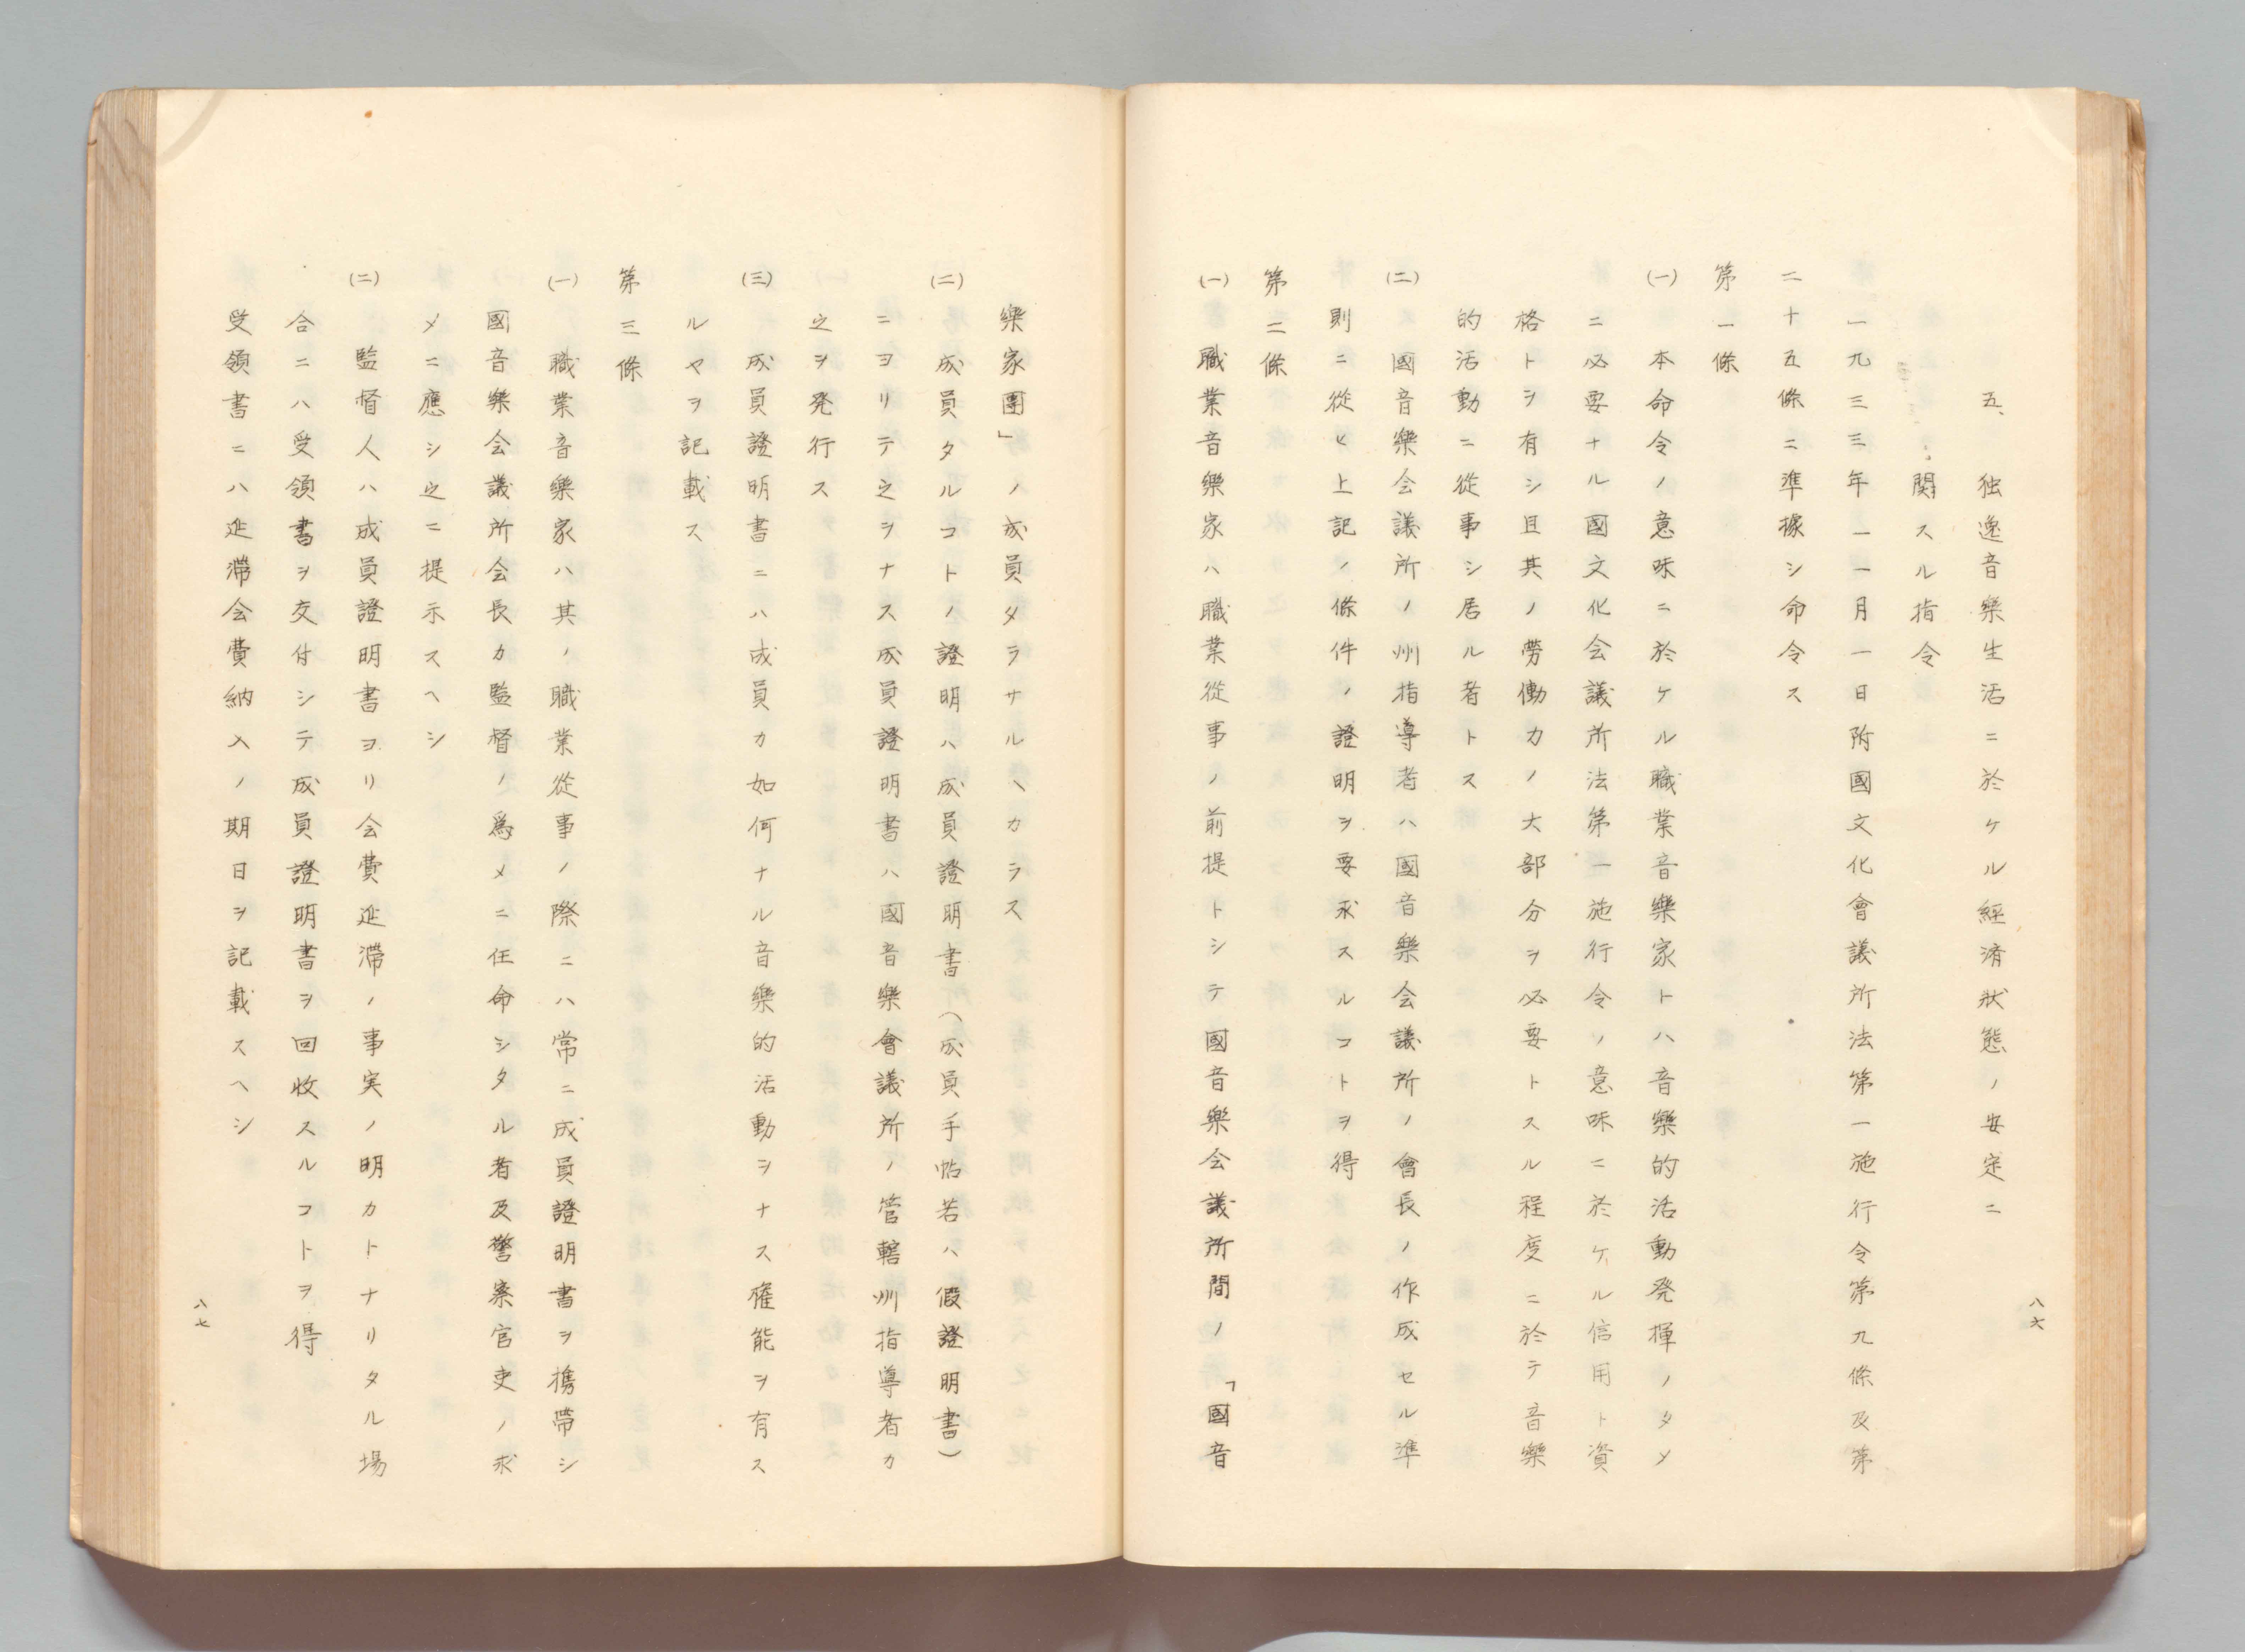 五、独逸音樂生活ニ於ケル經済狀態ノ安定ニ
関スル指令
一九三三年一一月一日附國文化會議所法第一施行令第九條及第
二十五條ニ準據シ命令ス
第一條
㈠本命令ノ意味ニ於ケル職業音樂家トハ音樂的活動発揮ノタメ
ニ必要ナル國文化会議所法第一施行令ノ意味ニ於ケル信用ト資
格トヲ有シ且其ノ勞働カノ大部分ヲ必要トスル程度ニ於テ音樂
的活動ニ從事シ居ル者トス
㈡國音樂会議所ノ州指導者ハ國音樂会議所ノ會長ノ作成セル準
則ニ從ヒ上記ノ條件ノ證明ヲ要求スルコトヲ得
第二條
㈠職業音樂家ハ職業從事ノ前提トシテ國音樂会議所間ノ「國音
八六
樂家團」ノ成員タラサルヘカラス
㈡成員タルコトノ證明ハ成員證明書(成員手帖若ハ假證明書)
ニヨリテ之ヲナス成員證明書ハ國音樂會議所ノ管轄州指導者カ
之ヲ発行ス
㈢成員證明書ニハ成員カ如何ナル音樂的活動ヲナス権能ヲ有ス
ルヤヲ記載ス
第三條
㈠職業音樂家ハ其ノ職業從事ノ際ニハ常ニ成員證明書ヲ携帶シ
國音樂会議所会長カ監督ノ爲メニ任命シタル者及警察官吏ノ求
メニ應シ之ニ提示スヘシ
㈡監督人ハ成員證明書ヨリ会費延滯ノ事実ノ明カトナリタル場
合ニハ受領書ヲ交付シテ成員證明書ヲ回收スルコトヲ得
受領書ニハ延滯会費納入ノ期日ヲ記載スヘシ
八七